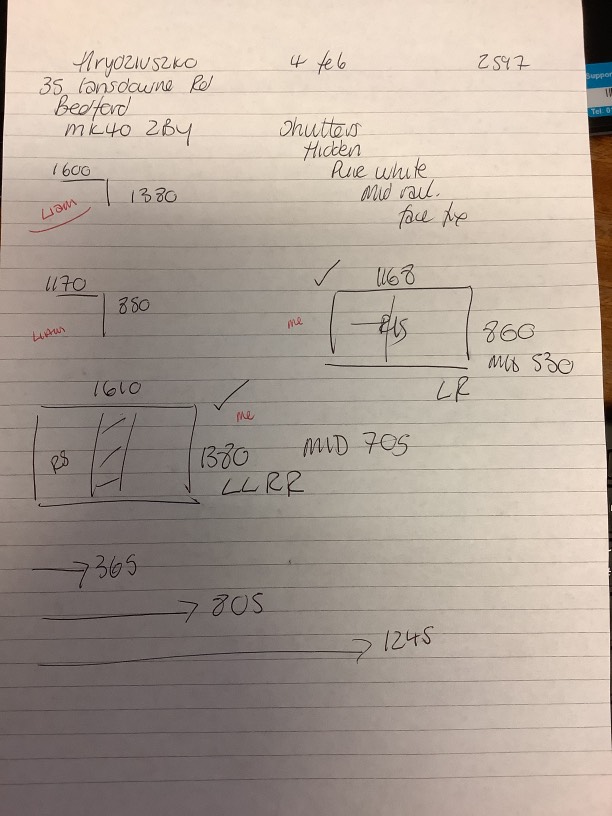 Hrydziuszko 4 feb 2597
35 Lansdowne Rd
Bedford
MK40 2BY
Shutters
Hidden
Pure white
Mid rail.
face fix
1600
1380
Liam
1170
880
Liam
1168
me
860
MID 530
LR
1610
me
1380
MID 705
LLRR
→365
→805
→1245
Suppor
Tel. 0